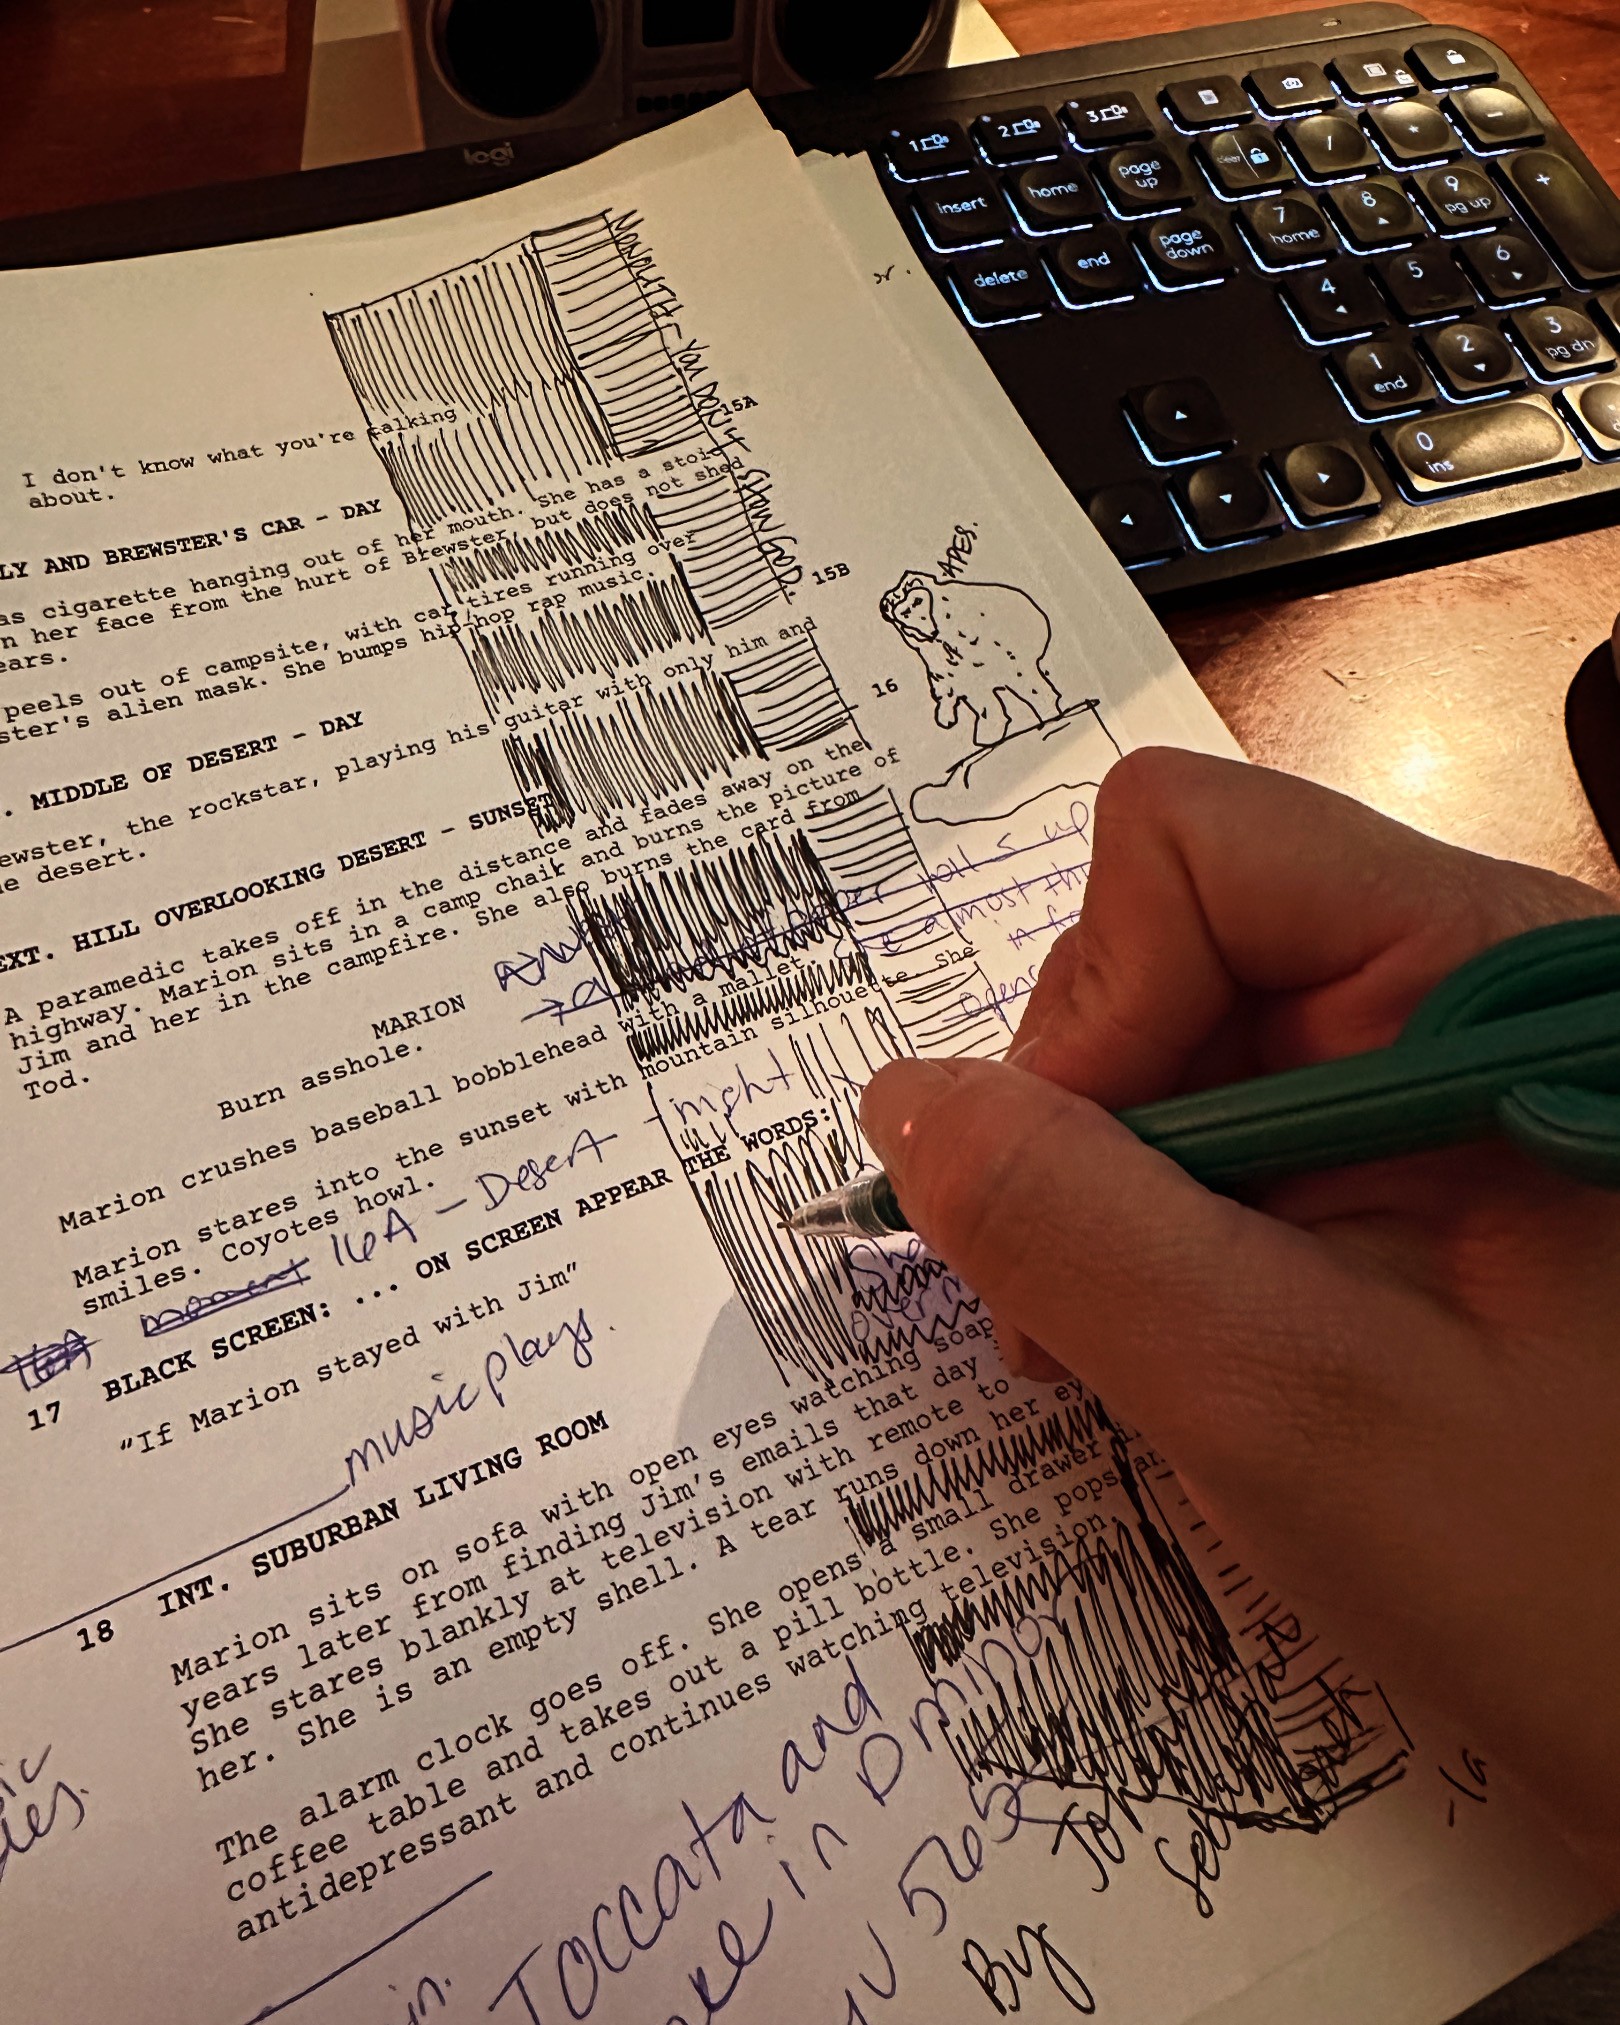 logi
1
2
3
insert
home
page up
clear
/
*
-
delete
end
page down
7 home
8
9 pg up
+
4
5
6
1 end
2
3 pg dn
0 ins
MONOLITH - YOU DON'T
I don't know what you're talking
about.
15A
LY AND BREWSTER'S CAR - DAY
as cigarette hanging out of her mouth. She has a stoic
n her face from the hurt of Brewster, but does not shed
ears.
15B
peels out of campsite, with car tires running over
ster's alien mask. She bumps hip-hop rap music.
APES.
. MIDDLE OF DESERT - DAY
16
ewster, the rockstar, playing his guitar with only him and
e desert.
EXT. HILL OVERLOOKING DESERT - SUNSET
A paramedic takes off in the distance and fades away on the
highway. Marion sits in a camp chair and burns the picture of
Jim and her in the campfire. She also burns the card from
Tod.
MARION
Burn asshole.
Marion crushes baseball bobblehead with a mallet.
Marion stares into the sunset with mountain silhouette. She
smiles. Coyotes howl.
16A moment 16A - Desert - night
17 BLACK SCREEN: ... ON SCREEN APPEAR THE WORDS:
"If Marion stayed with Jim"
music plays.
18 INT. SUBURBAN LIVING ROOM
Marion sits on sofa with open eyes watching soap
years later from finding Jim's emails that day
She stares blankly at television with remote to
her. She is an empty shell. A tear runs down her ey
The alarm clock goes off. She opens a small drawer
coffee table and takes out a pill bottle. She pops an
antidepressant and continues watching television.
Toccata and
in D minor
565
By Johann
Sebastian